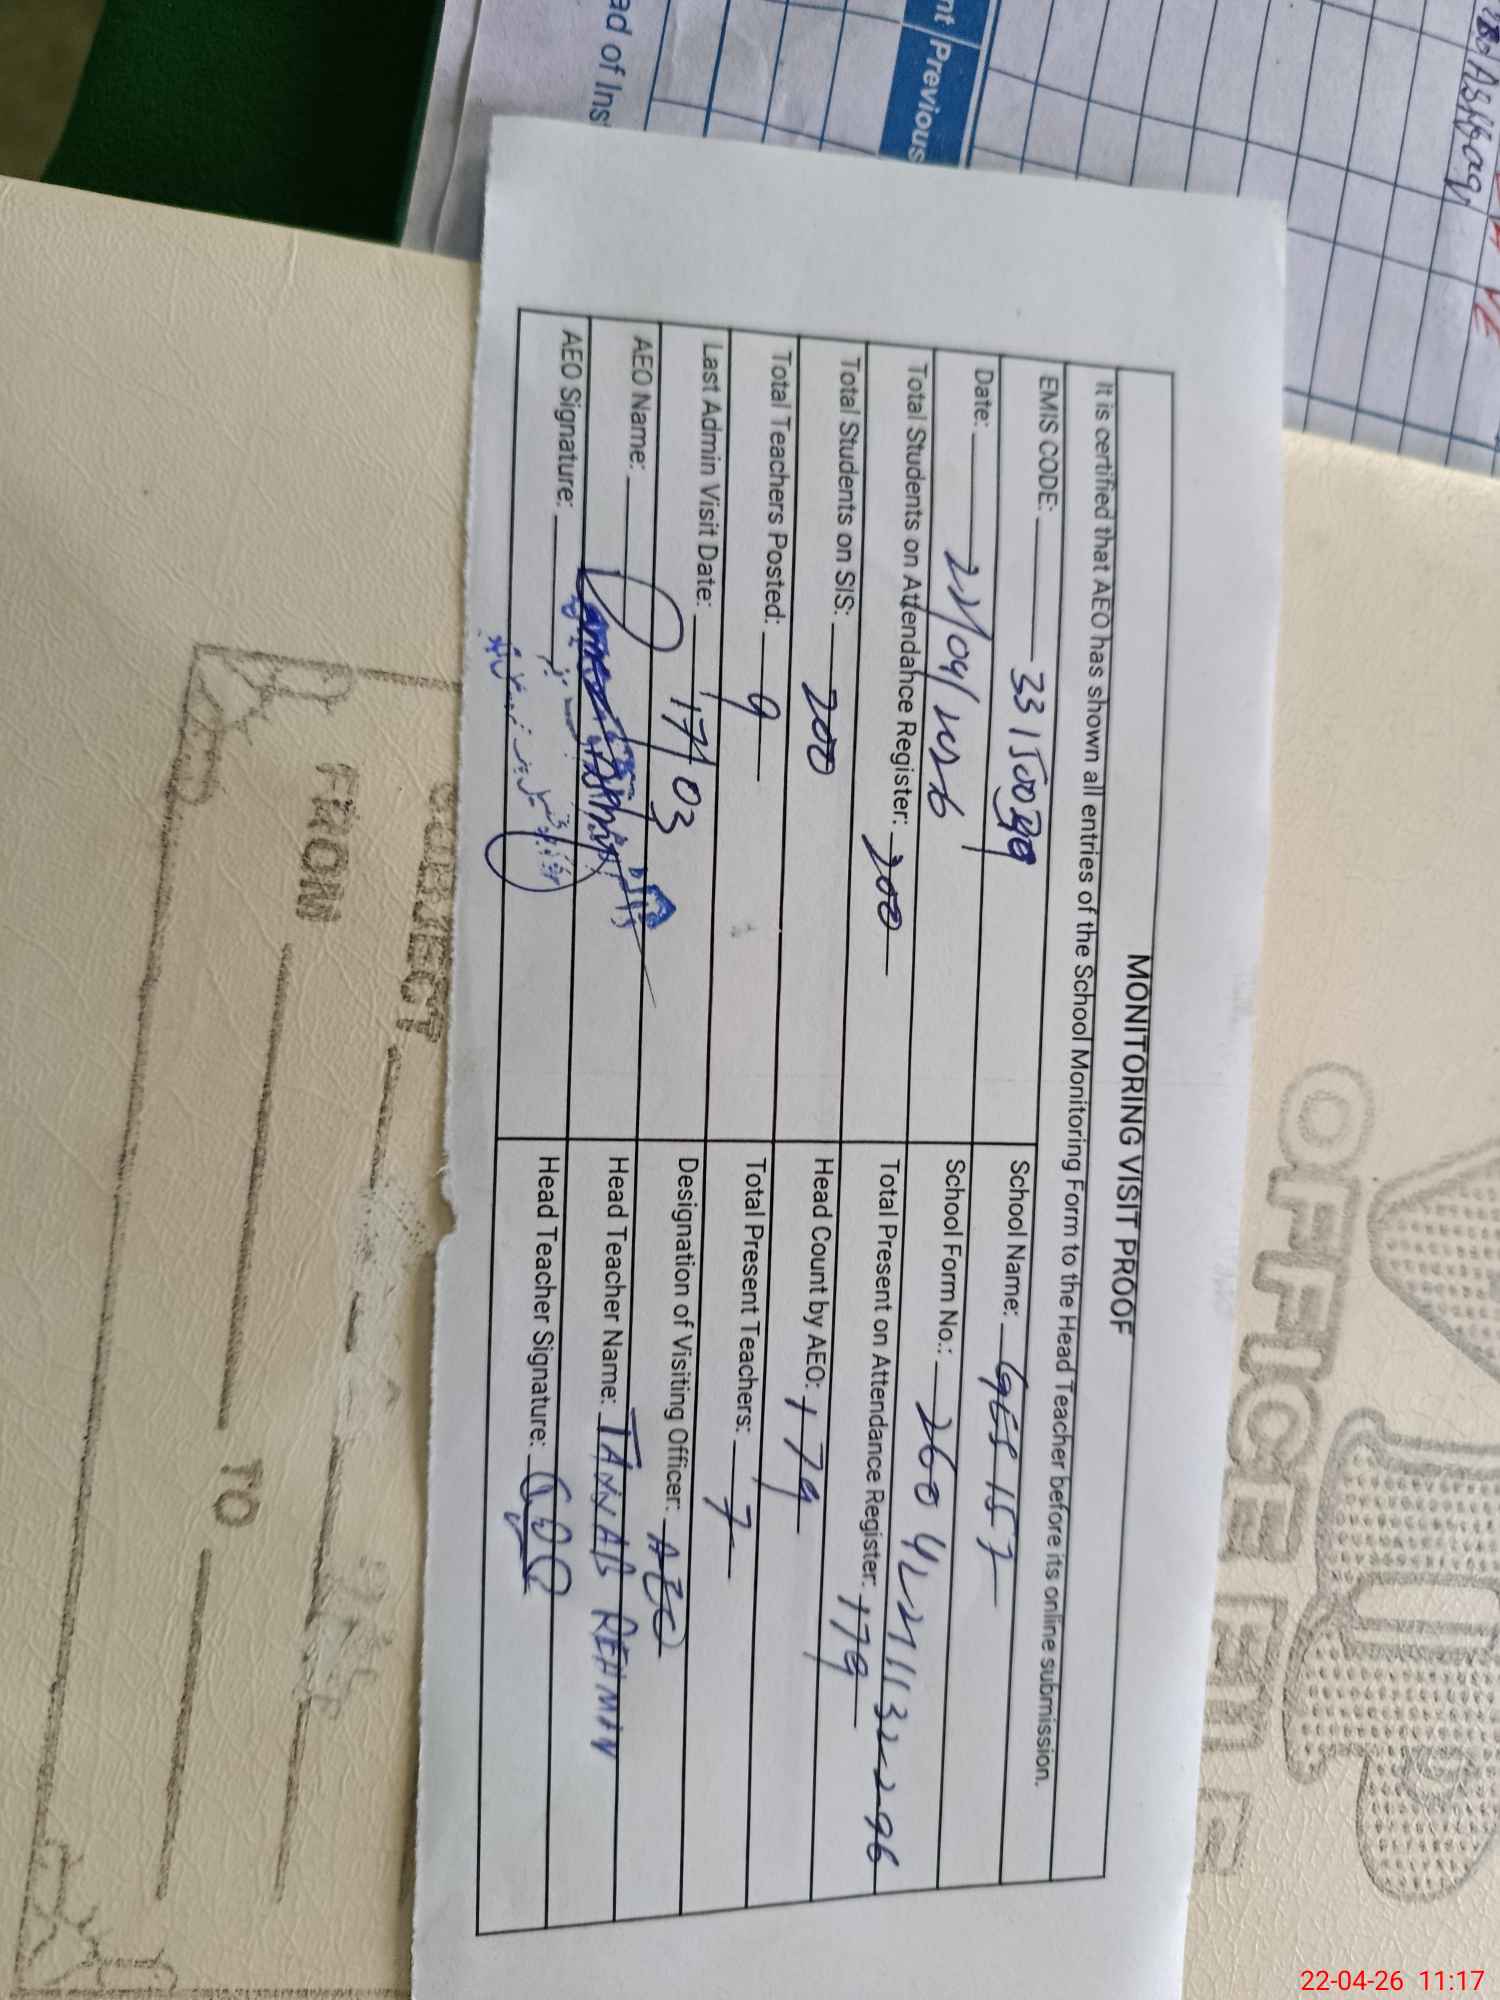 MONITORING VISIT PROOF
It is certified that AEO has shown all entries of the School Monitoring Form to the Head Teacher before its online submission.
EMIS CODE: School Name: GES 157
Date: 22/04/2026 School Form No.:
Total Students on Attendance Register: 200 Total Present on Attendance Register: 179
Total Students on SIS: 200 Head Count by AEO: 179
Total Teachers Posted: 9 Total Present Teachers: 7
Last Admin Visit Date: 17/03 Designation of Visiting Officer: AEO
AEO Name: Head Teacher Name: REHMAN
AEO Signature: Head Teacher Signature:
nt Previous
ad of Ins
Ashfaq
OFFICE FILE
SUBJECT
FROM TO
22-04-26 11:17